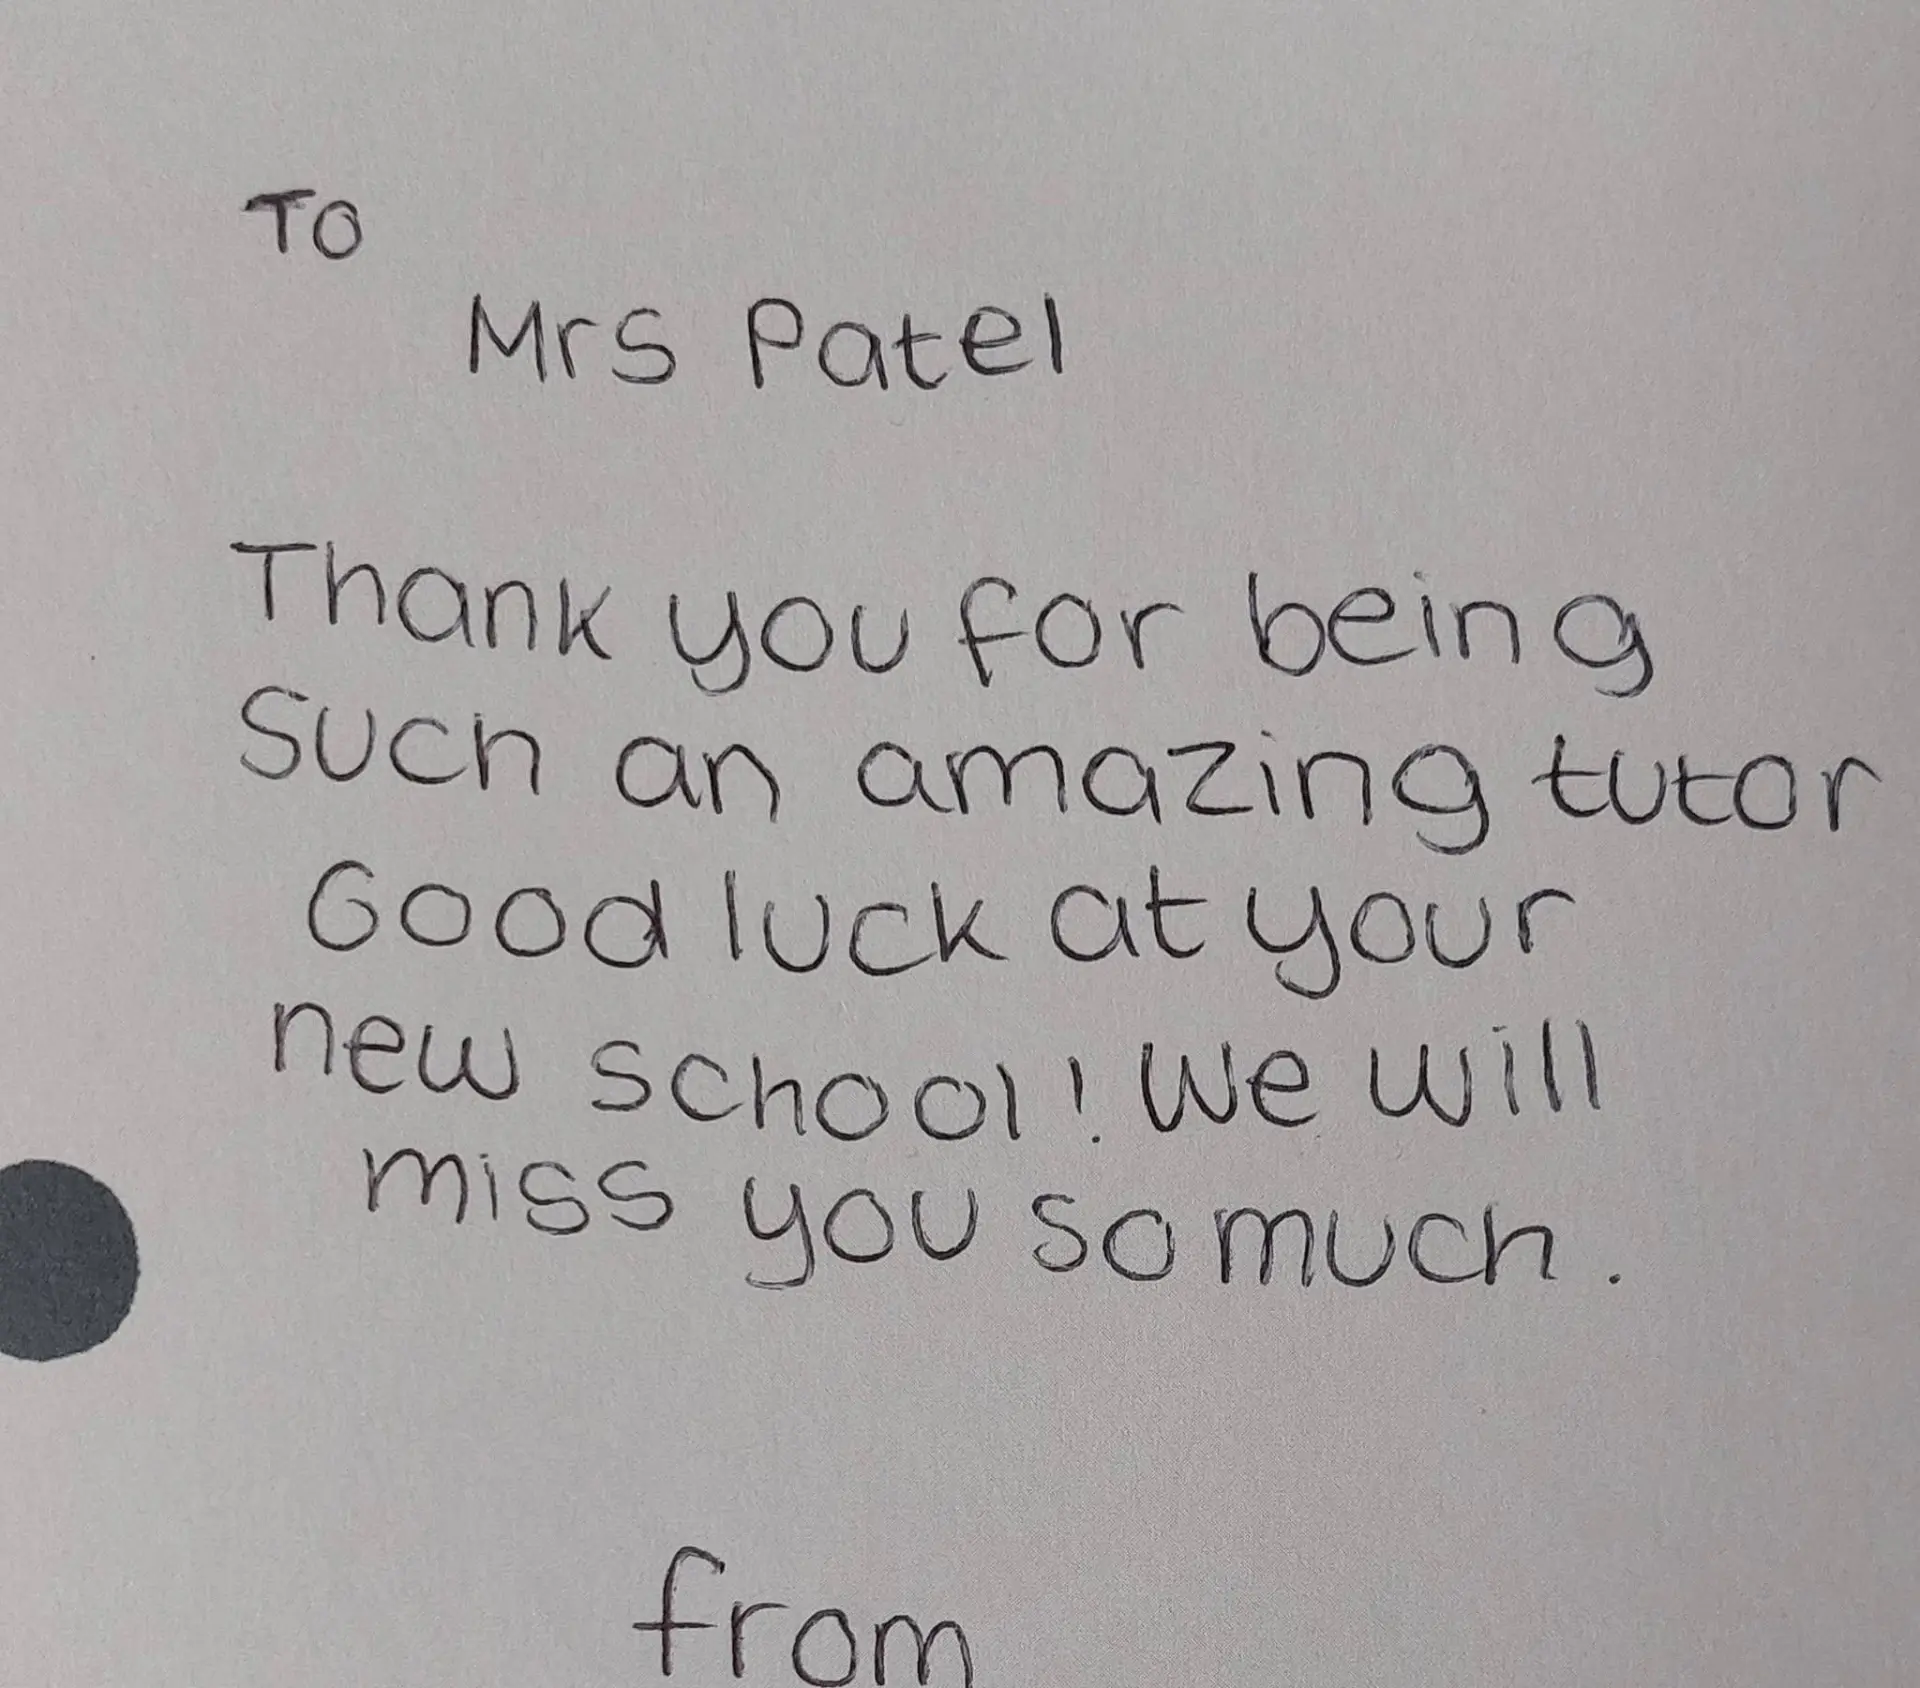 To
Mrs Patel
Thank you for being
Such an amazing tutor
Good luck at your
new school! We will
miss you so much.
from